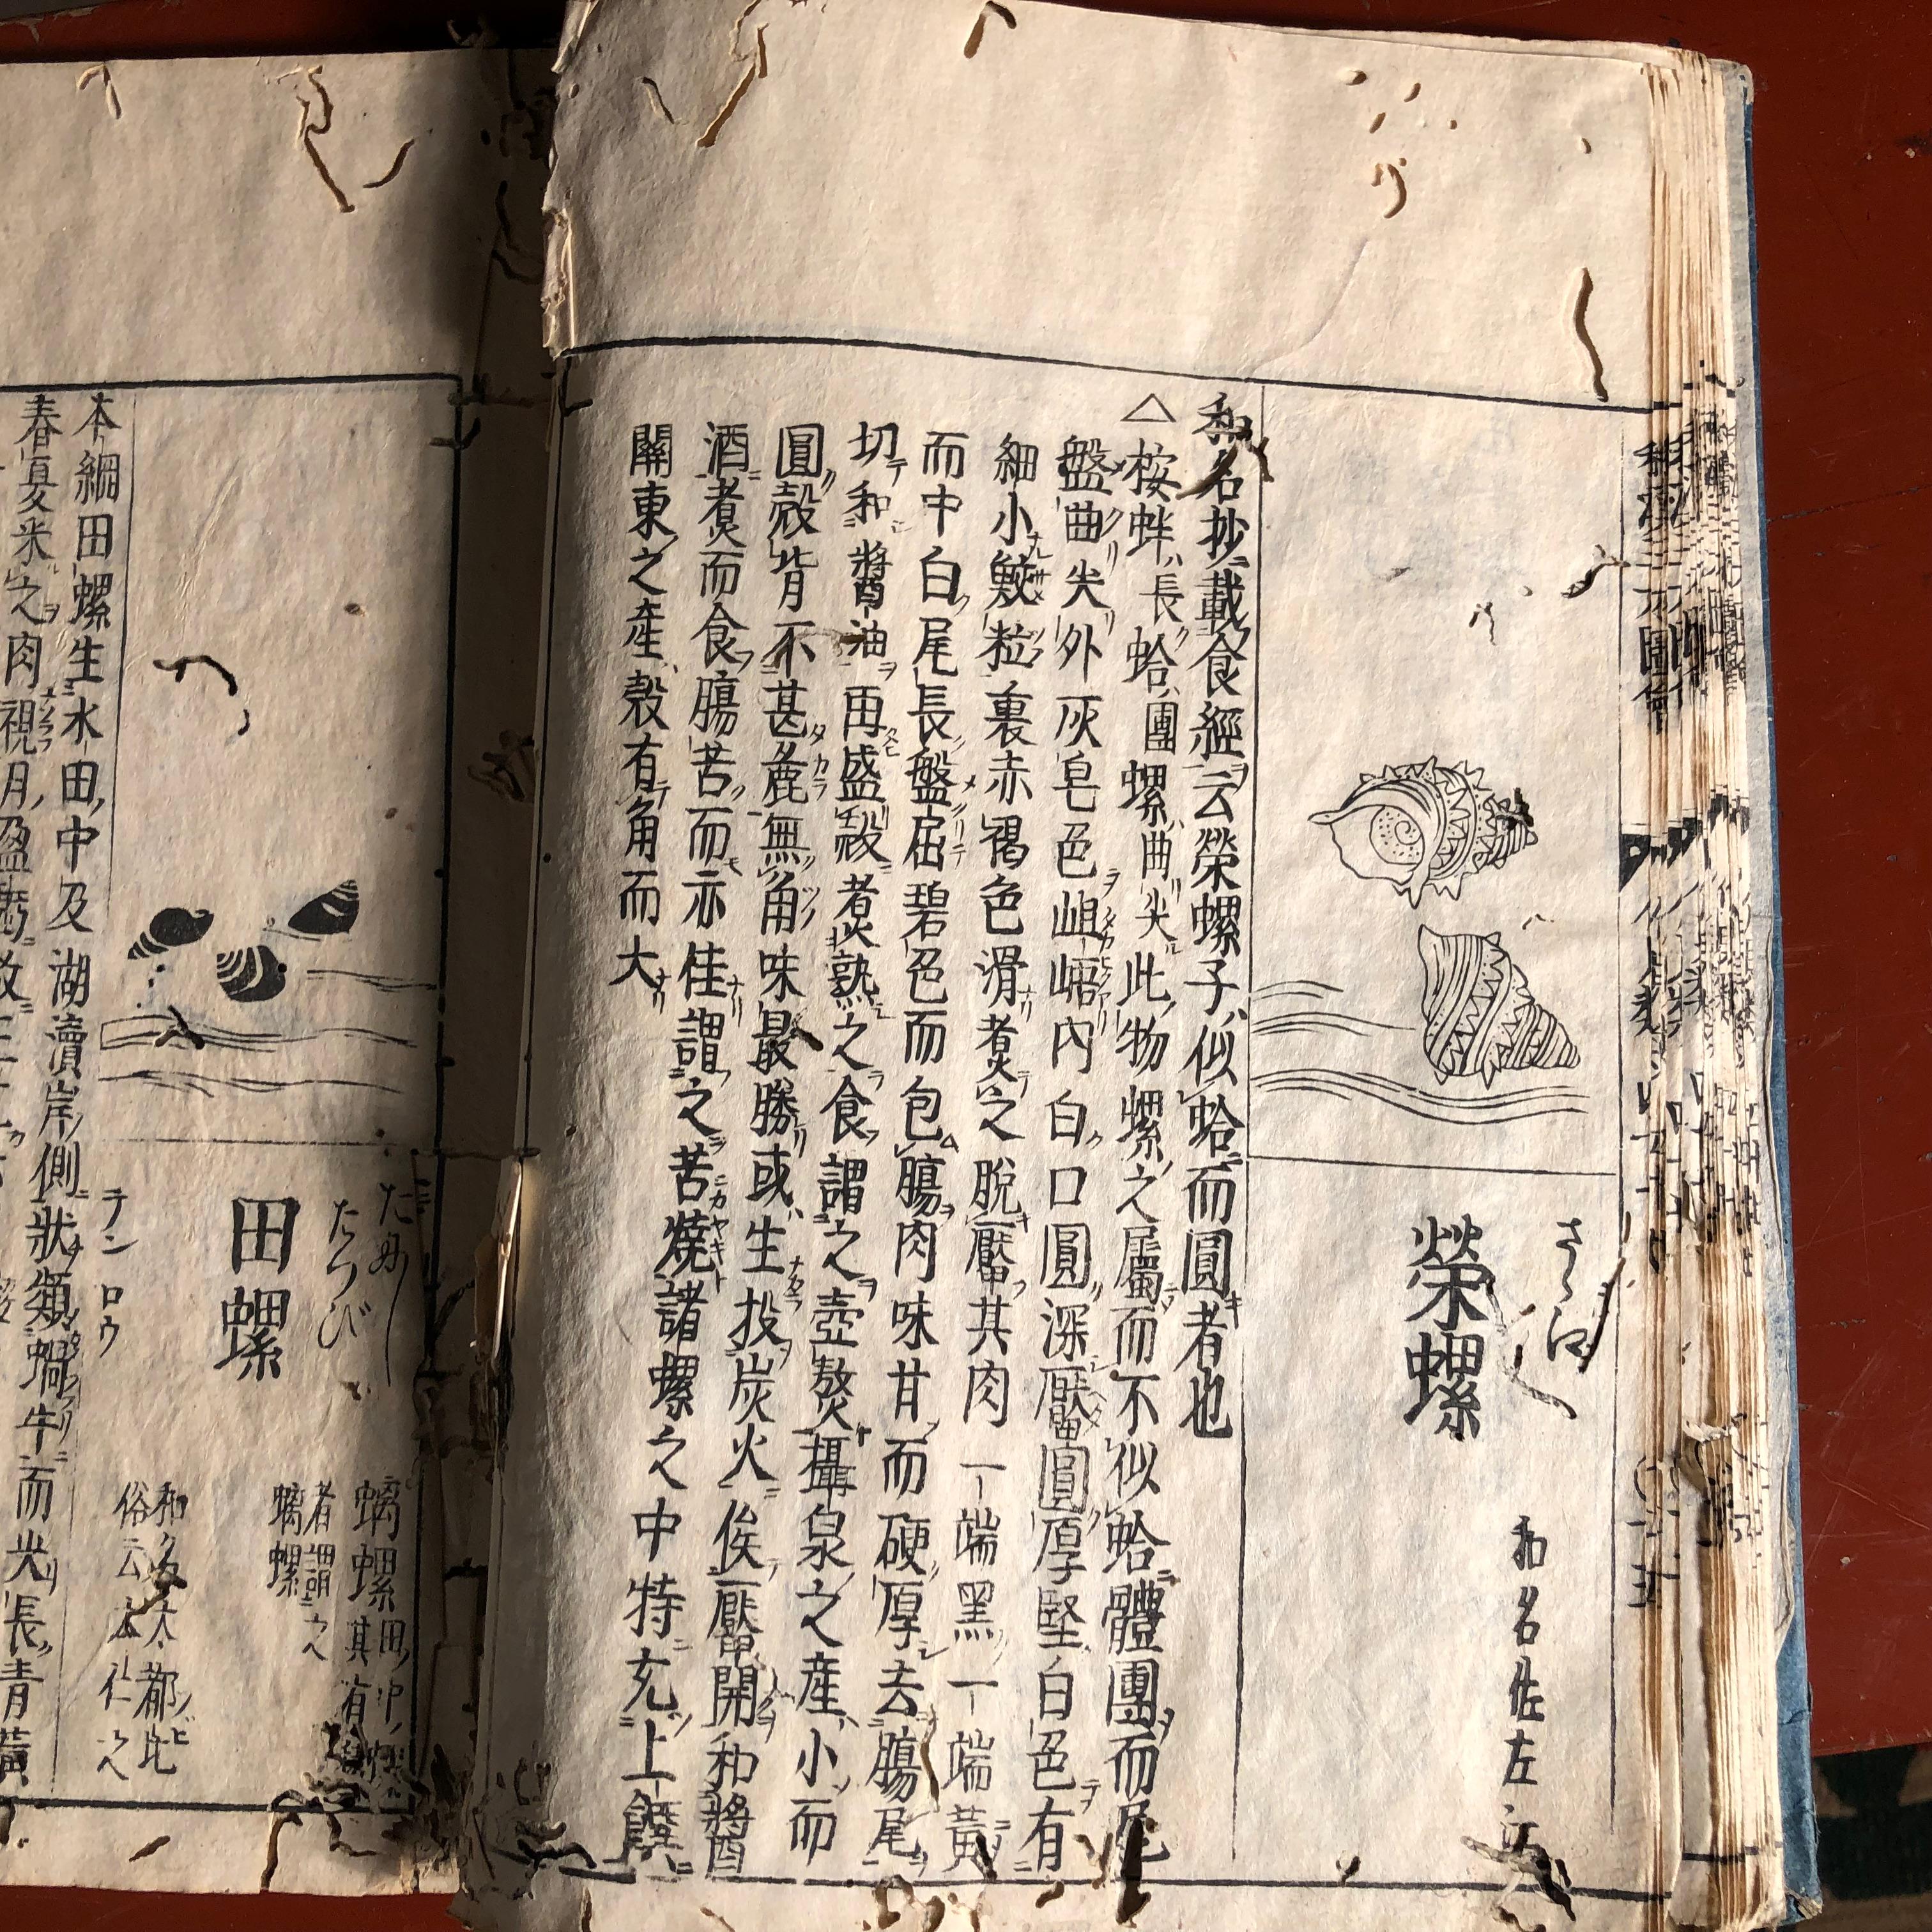 さゝゐ
榮螺
和名佐左江
和名抄載食經云榮螺子似蛤而圓者也
△按蚌長蛤團螺曲尖此物螺之屬而不似蛤體團而尾
盤曲尖外灰皂色岨峿內白口圓深靨圓厚堅白色有
細小鮫粒裏赤褐色滑煮之脫靨其肉一端黑一端黃
而中白尾長盤屈碧色而包腸肉味甘而硬厚去腸尾
切和醬油再盛殻煮熟之食謂之壺熬攝泉之產小而
圓殻背不甚麁無角味最勝或生投炭火俟靨開和醬
酒煮而食腸苦而亦佳謂之苦燒諸螺之中特充上饌
關東之產殻有角而大
たつび
田螺
テン ロウ
螭螺田中
其有
者謂之
螭螺
和名太都比
俗云太仁之
本綱田螺生水田中及湖瀆岸側狀類蝸牛而尖長青黃
春夏采之肉視月盈